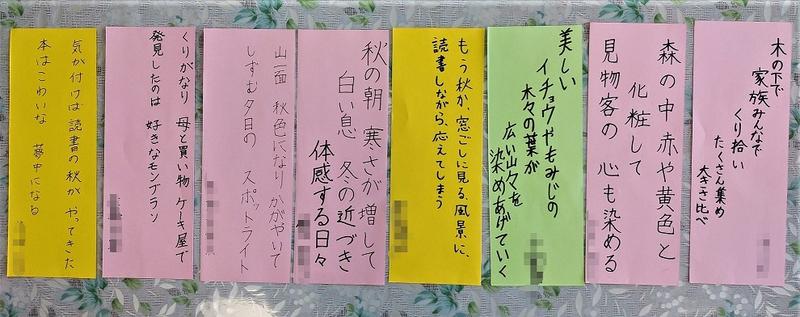 木の下で
家族みんなで
くり拾い
たくさん集め
大きさ比べ
森の中赤や黄色と
化粧して
見物客の 心も染める
美しい
イチョウやもみじの
木々の葉が
広い山々を
染めあげていく
もう秋か、窓ごしに見る、風景に、
読書しながら、応えてしまう
秋の朝 寒さが増して
白い息 冬の近づき
体感する日々
山一面 秋色になり かがやいて
しずむ夕日の スポットライト
くりがなり 母と買い物 ケーキ屋で
発見したのは 好きなモンブラン
気が付けば 読書の秋が やってきた
本はこわいな 夢中になる